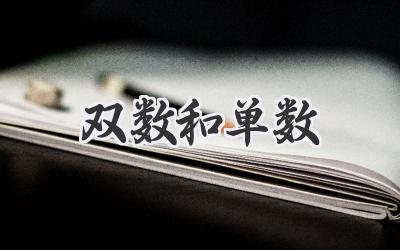 双数和单数